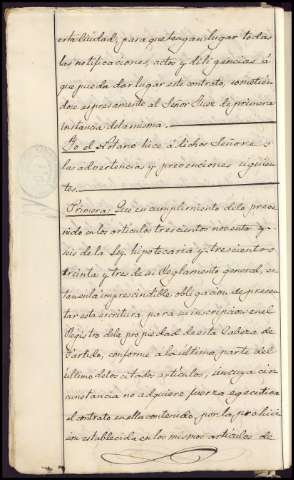 esta Ciudad, para que tengan lugar todas
las notificaciones, actos y diligencias á
que pueda dar lugar este contrato, sometién
dose espresamente al Señor Juez de primera
instancia de la misma.
Yo el Notario hice á dichos Señores
las advertencias y prevenciones siguien
tes.
Primera: Que en cumplimiento de lo preve
nido en los artículos trescientos noventa y
seis de la Ley hipotecaria y trescientos
treinta y tres de su Reglamento general, es
tan en la imprescindible obligacion de presen
tar esta escritura para su inscripcion en el
Registro de la propiedad de esta Cabeza de
Partido, conforme a la última parte del
último de los citados artículos, sin cuya cir
cunstancia no adquiere fuerza egecutiva
el contrato en ella contenido, por la prohibi
cion establecida en los mismos artículos de